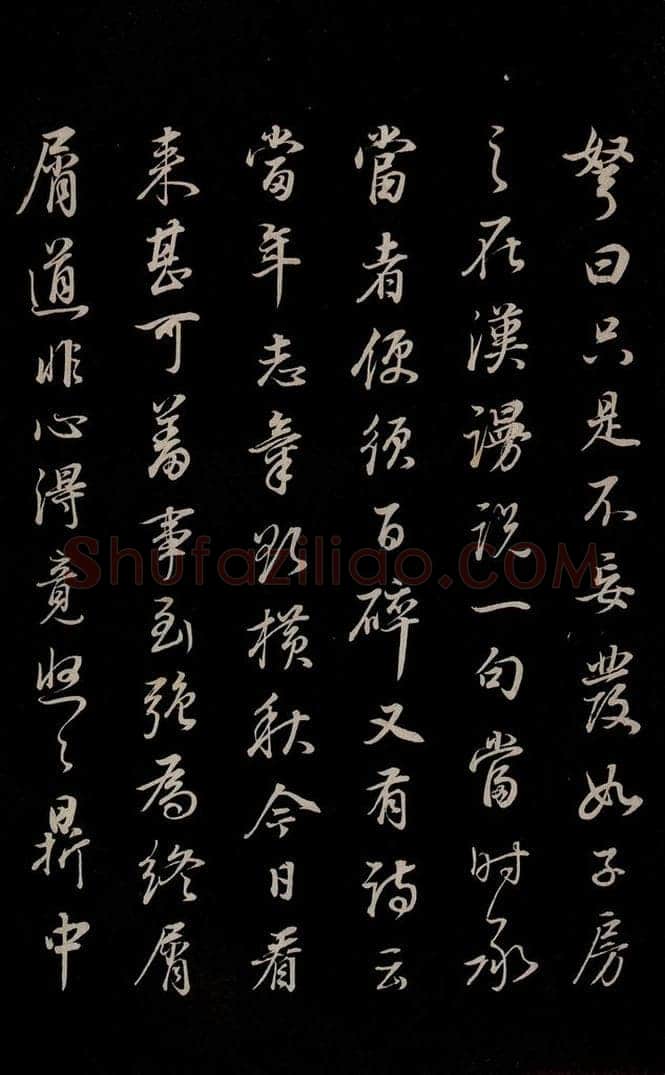 弩曰只是不妄發如子房
之在漢謾說一句當時承
當者便須百碎又有詩云
當年志氣欲橫秋今日看
来甚可羞事到強為終屑
屑道非心得竟悠々鼎中
Shufaziliao.COM